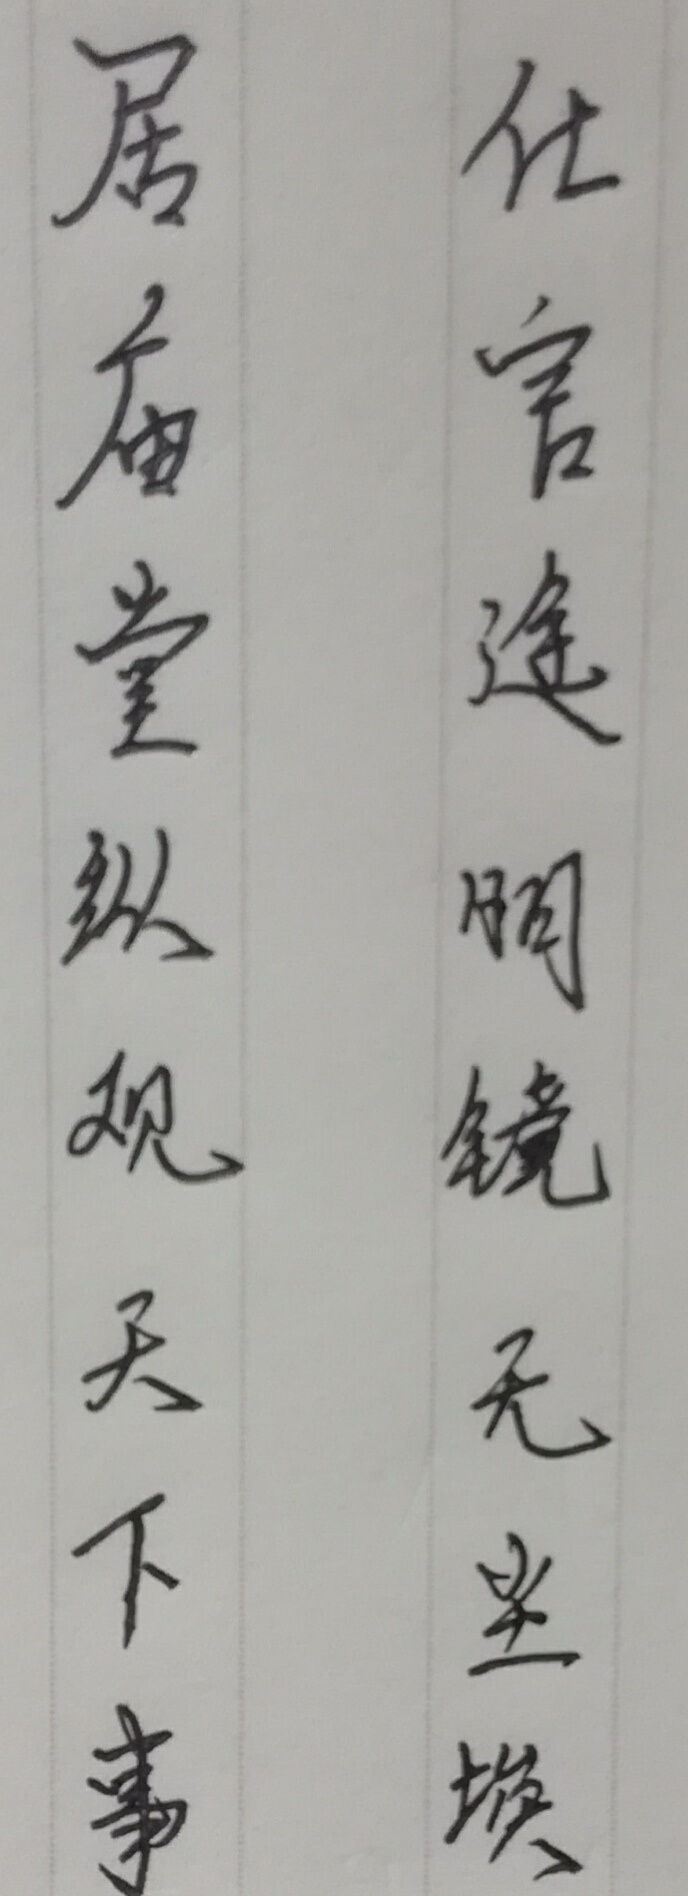 仕官途明镜无尘埃
居庙堂纵观天下事